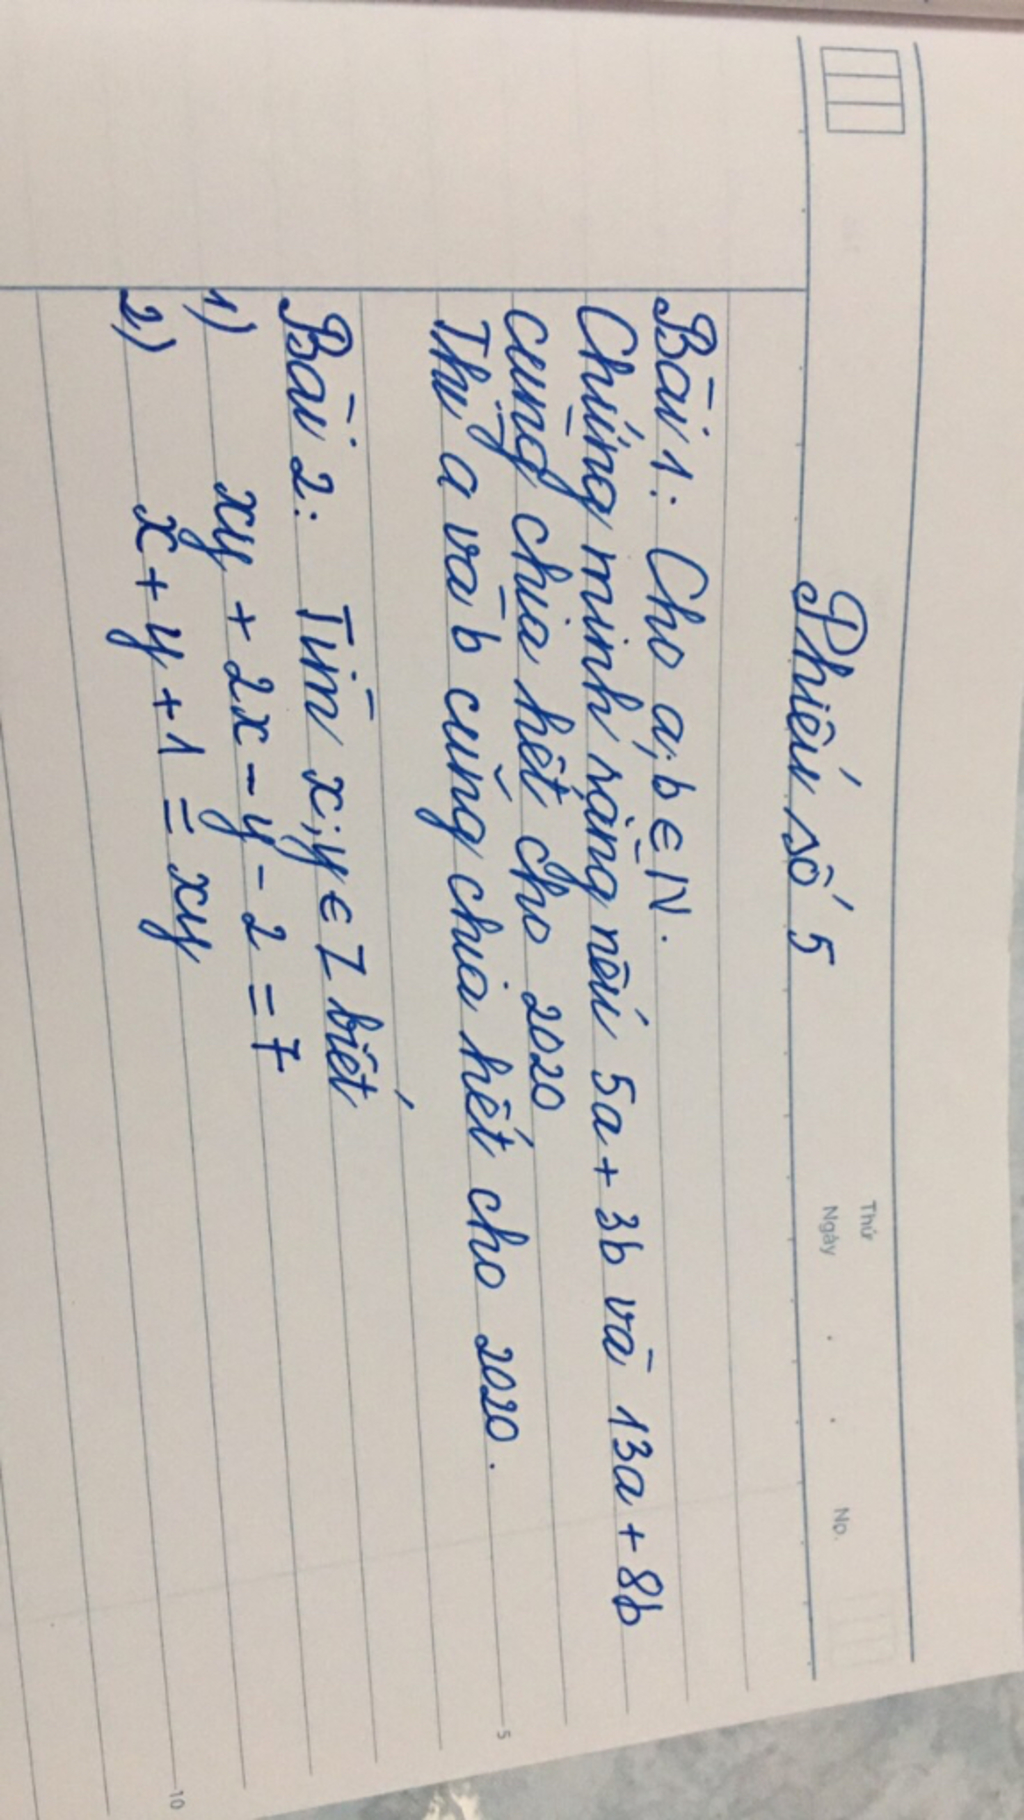 Thứ
Ngày . .
No.
Phiếu số 5
Bài 1: Cho a; b ∈ N.
Chứng minh rằng nếu 5a + 3b và 13a + 8b
cùng chia hết cho 2020
Thì a và b cũng chia hết cho 2020.
5
Bài 2: Tìm x; y ∈ Z biết
1) xy + 2x - y - 2 = 7
2) x + y + 1 = xy
10